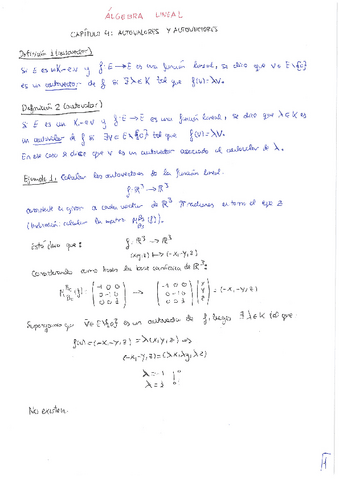 ÁLGEBRA LINEAL
CAPÍTULO 4: AUTOVALORES Y AUTOVECTORES
Definición 1 (autovector)
Si E es un K-ev y f: E → E es una función lineal, se dice que v ∈ E\{0}
es un autovector de f si ∃ λ ∈ K tal que f(v)=λv.
Definición 2 (autovalor)
Si E es un K-ev y f: E → E es una función lineal, se dice que λ ∈ K es
un autovalor de f si ∃ v ∈ E\{0} tal que f(v)=λv.
En ese caso se dice que v es un autovector asociado al autovalor de λ.
Ejemplo 1: Calcular los autovectores de la función lineal.
f: R³ → R³
consistente en girar a cada vector de R³ π radianes en torno al eje z
(Indicación: calcular la matriz
Está claro que: f: R³ → R³
(x,y,z) ↦ (-x,-y,z)
Considerando como bases la base canónica de R³:
(-1 0 0 / 0 -1 0 / 0 0 1) → (-1 0 0 / 0 -1 0 / 0 0 1) (x / y / z) = (-x,-y,z)
Supongamos que v ∈ E\{0} es un autovector de f; luego ∃ λ ∈ K tal que:
f(v)=(-x,-y,z)=λ(x,y,z) ⇒
(-x,-y,z)=(λx,λy,λz)
λ=-1
λ=1
No existen.